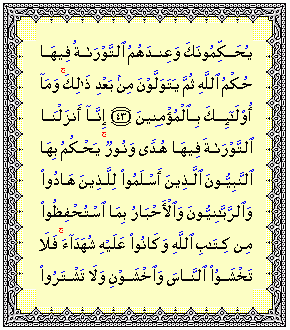 يُحَكِّمُونَكَ وَعِندَهُمُ ٱلتَّوْرَىٰةُ فِيهَا
حُكْمُ ٱللَّهِ ثُمَّ يَتَوَلَّوْنَ مِنۢ بَعْدِ ذَٰلِكَ ۚ وَمَآ
أُو۟لَـٰٓئِكَ بِٱلْمُؤْمِنِينَ ﴿٤٣﴾ إِنَّآ أَنزَلْنَا
ٱلتَّوْرَىٰةَ فِيهَا هُدًى وَنُورٌ ۚ يَحْكُمُ بِهَا
ٱلنَّبِيُّونَ ٱلَّذِينَ أَسْلَمُوا۟ لِلَّذِينَ هَادُوا۟
وَٱلرَّبَّـٰنِيُّونَ وَٱلْأَحْبَارُ بِمَا ٱسْتُحْفِظُوا۟
مِن كِتَـٰبِ ٱللَّهِ وَكَانُوا۟ عَلَيْهِ شُهَدَآءَ ۚ فَلَا
تَخْشَوُا۟ ٱلنَّاسَ وَٱخْشَوْنِ وَلَا تَشْتَرُوا۟